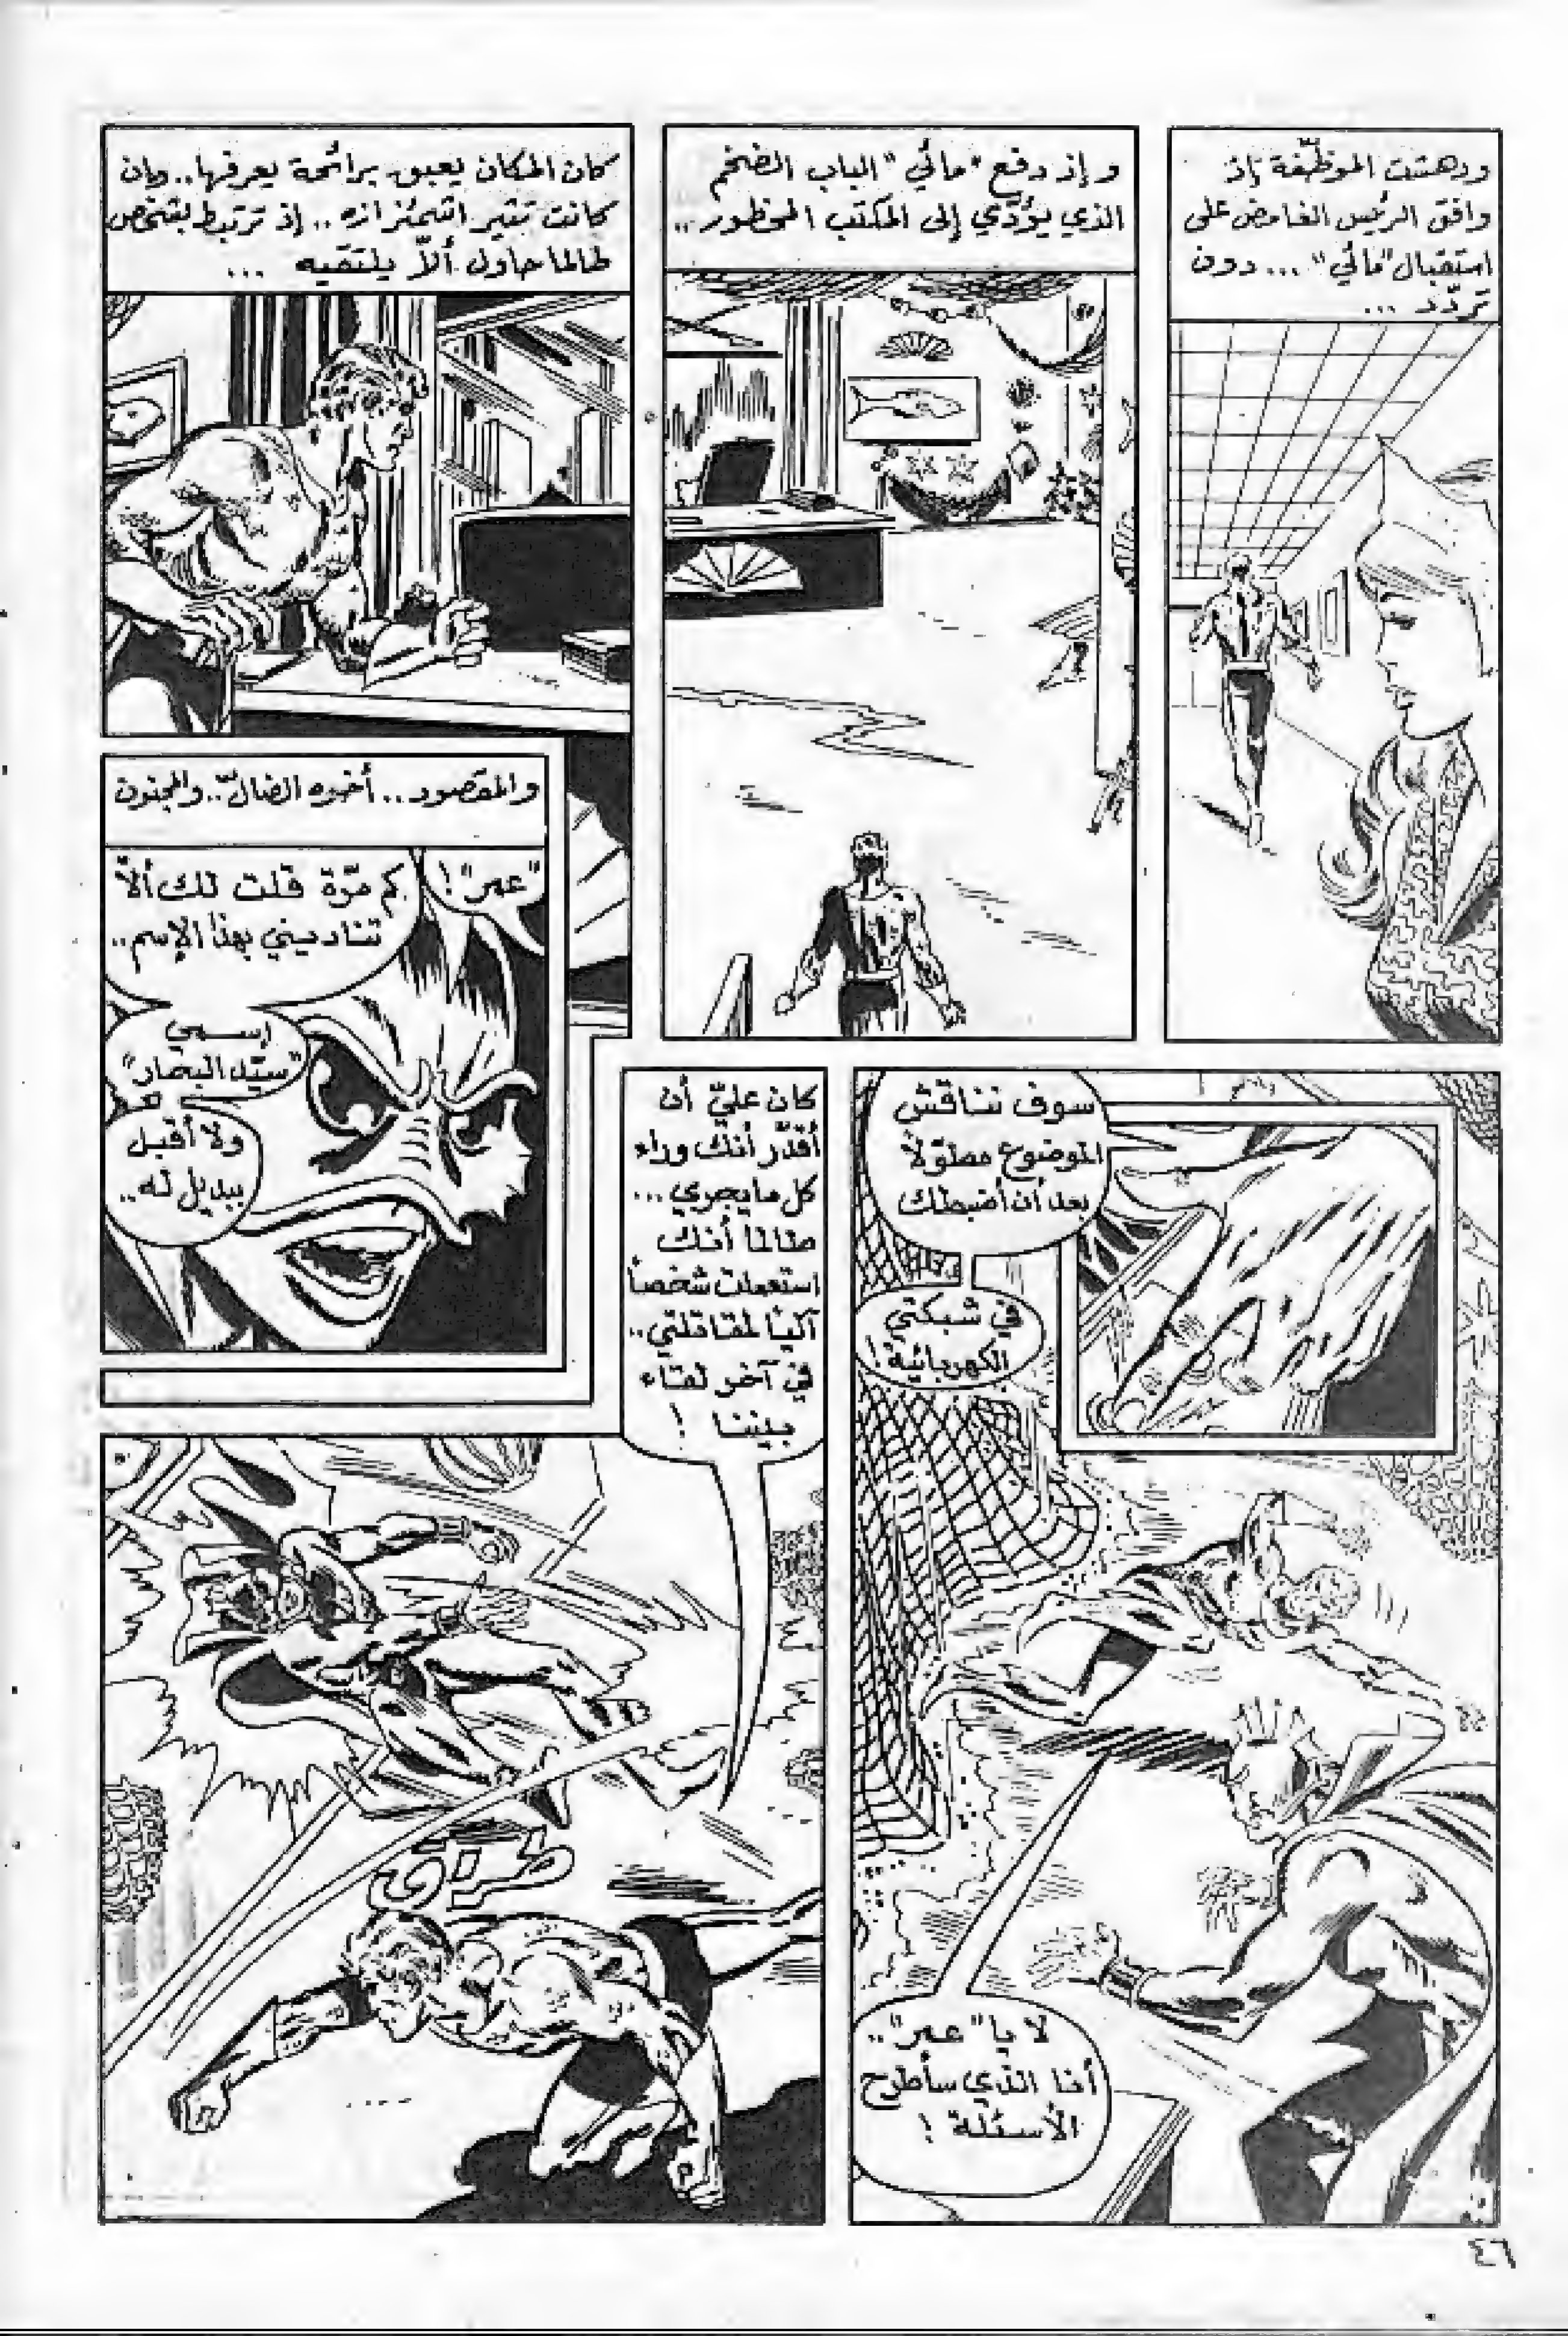 ودهشت الموظّفة إذ
وافق الرئيس الغامض على
استقبال "مائي" ... دون
تردّد ...
وإذ دفع "مائي" الباب الضخم
الذي يؤدّي إلى المكتب المحظور ..
كان المكان يعبق برائحة يعرفها .. وإن
كانت تثير اشمئزازه .. إذ ترتبط بشخص
لطالما حاول ألاّ يلتقيه ...
والمقصود .. أخوه الضالّ .. والمجنون
"عمر" !
كم مرّة قلت لك ألاّ
تناديني بهذا الإسم ..
إسمي
"سيّد البحار"
ولا أقبل
ببديل له ..
سوف نناقش
الموضوع مطوّلاً
بعد أن أضبطك
في شبكتي
الكهربائية !
لا يا "عمر" ..
أنا الذي سأطرح
الأسئلة !
كان عليّ أن
أقدّر أنك وراء
كل ما يجري ...
طالما أنك
استعملت شخصاً
آلياً لمقاتلتي ..
في آخر لقاء
بيننا !
طراق
٤٦